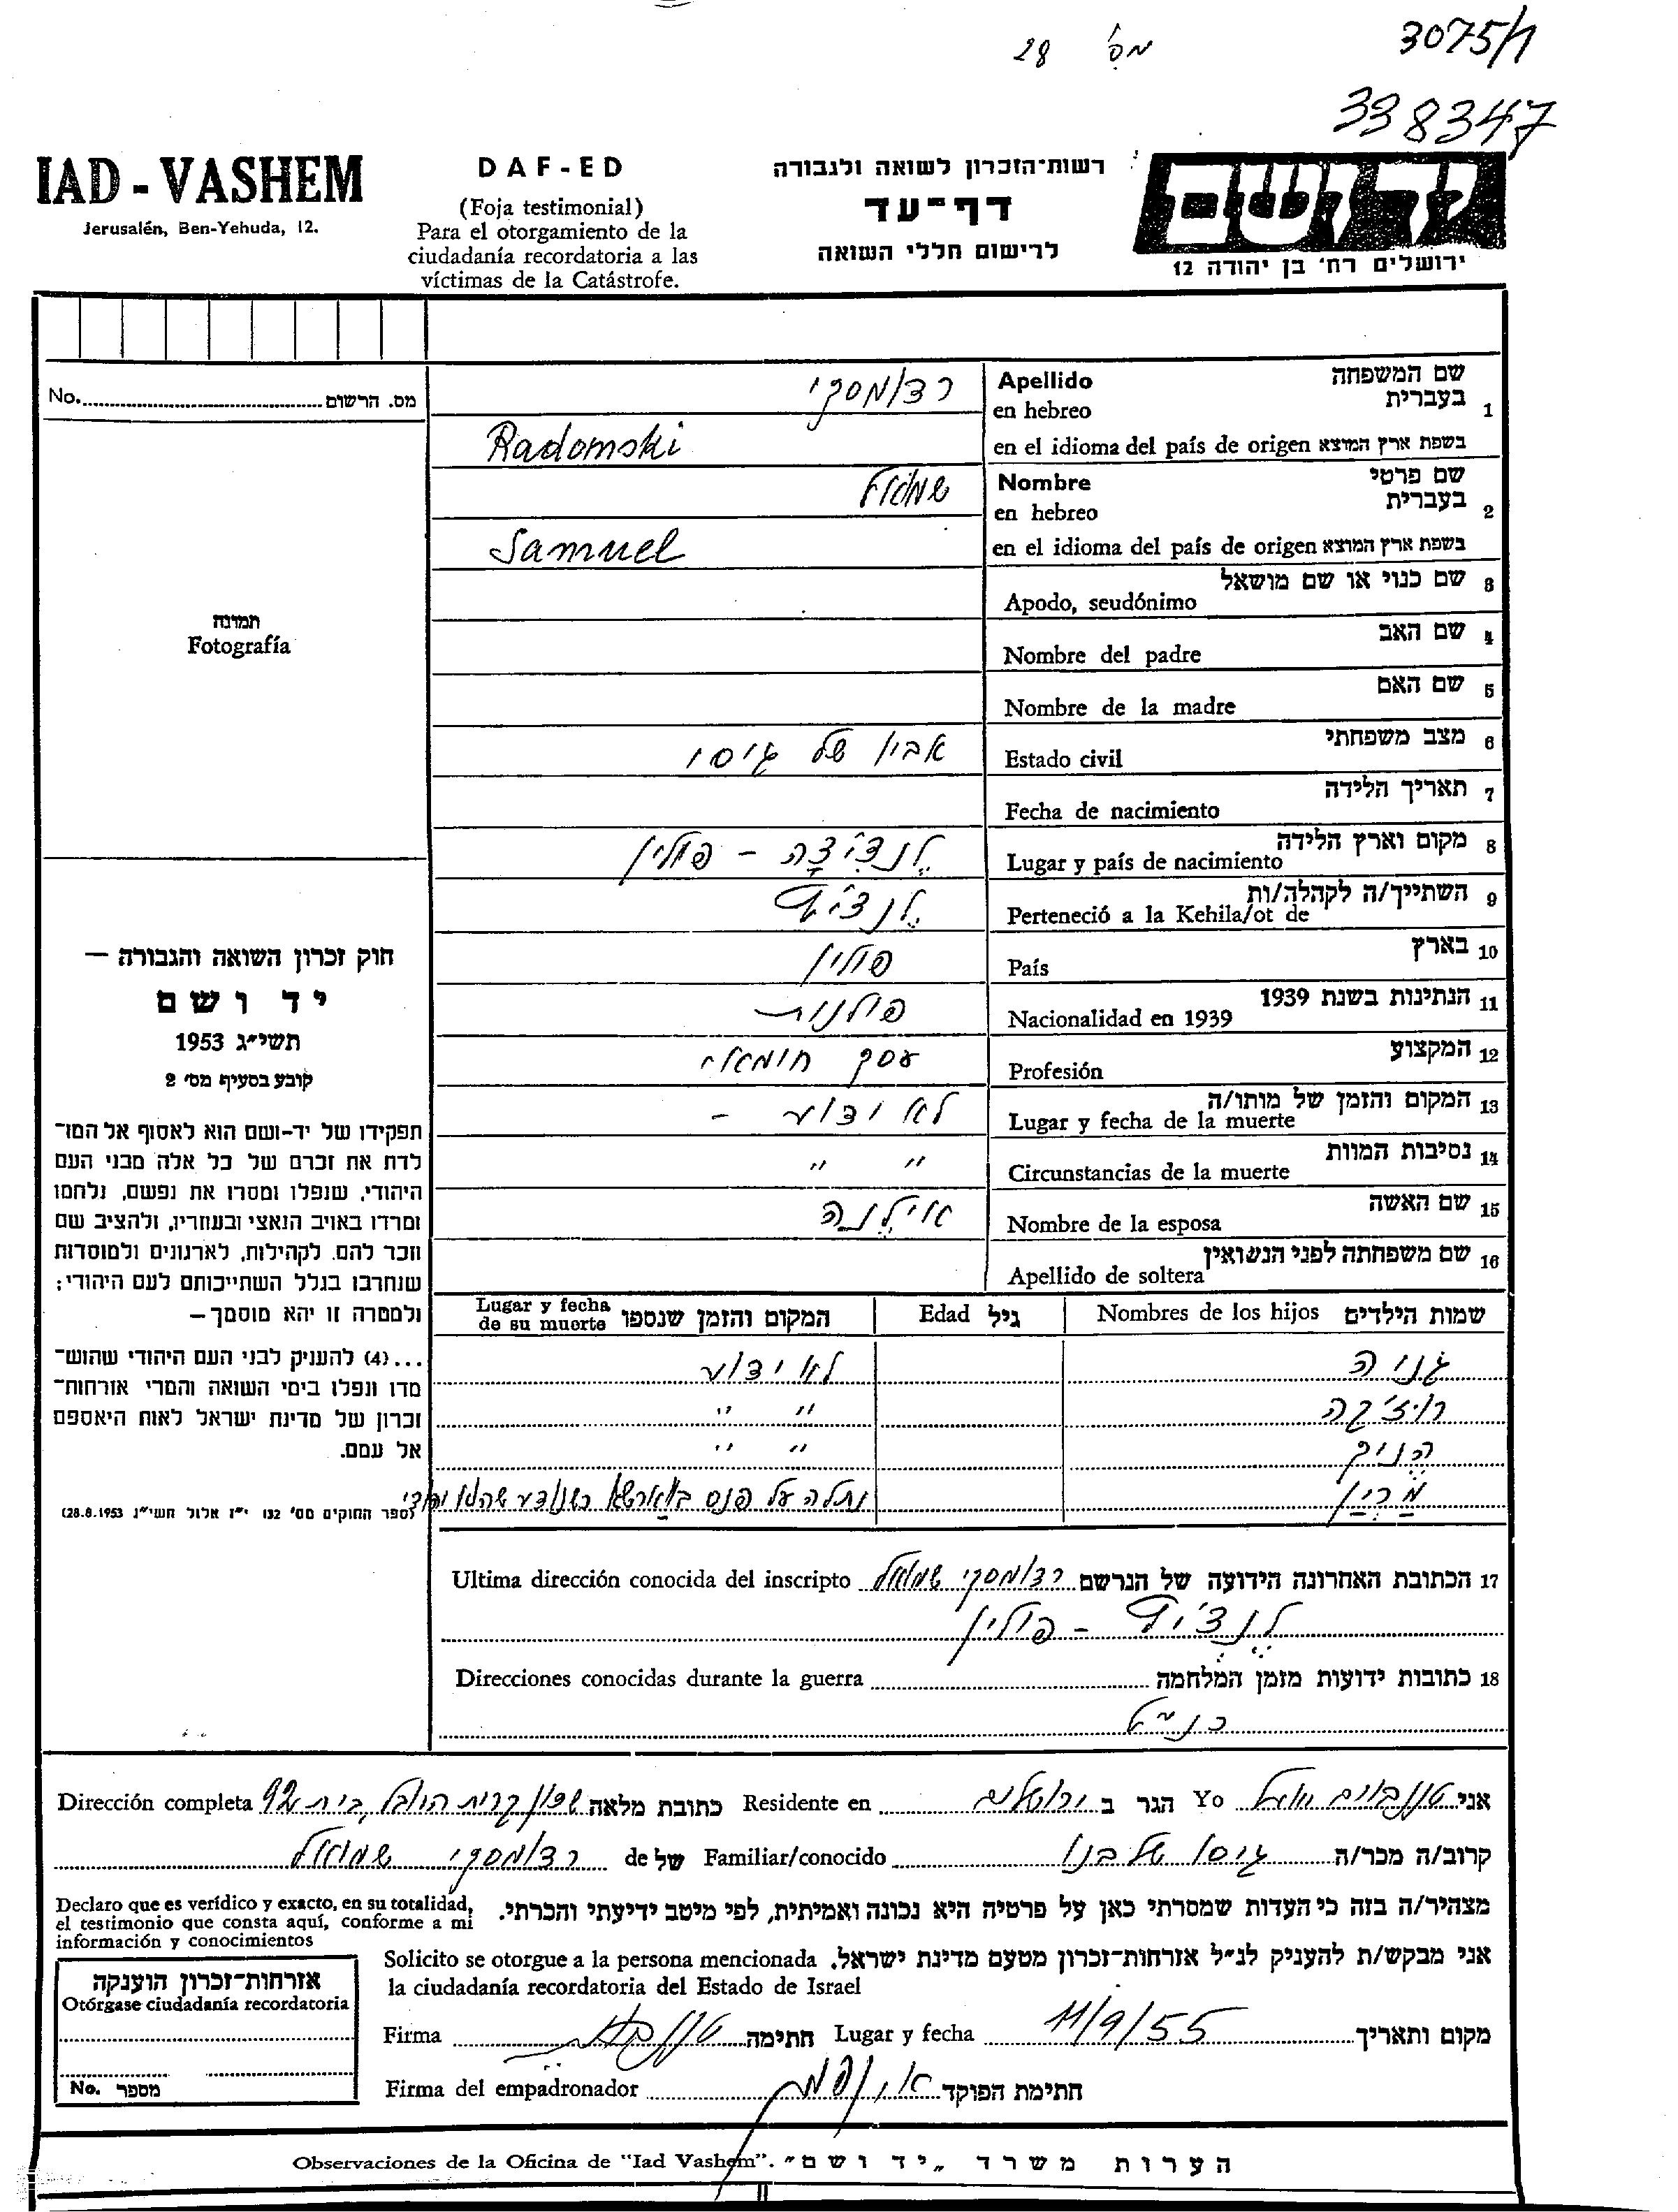 28 מס'
3075/ח
338347
IAD - VASHEM
Jerusalén, Ben-Yehuda, 12.
DAF-ED
(Foja testimonial)
Para el otorgamiento de la
ciudadanía recordatoria a las
víctimas de la Catástrofe.
רשות־הזכרון לשואה ולגבורה
דף־עד
לרישום חללי השואה
יד ושם
ירושלים רח' בן יהודה 12
No. מס. הרשום
תמונה
Fotografía
חוק זכרון השואה והגבורה —
יד ושם
תשי״ג 1953
קובע בסעיף מס' 2
תפקידו של יד־ושם הוא לאסוף אל המו־
לדת את זכרם של כל אלה מבני העם
היהודי, שנפלו ומסרו את נפשם, נלחמו
ומרדו באויב הנאצי ובעוזריו, ולהציב שם
וזכר להם, לקהילות, לארגונים ולמוסדות
שנחרבו בגלל השתייכותם לעם היהודי;
ולמטרה זו יהא מוסמך —
...(4) להעניק לבני העם היהודי שהוש־
מדו ונפלו בימי השואה והמרי אזרחות־
זכרון של מדינת ישראל לאות היאספם
אל עמם.
(ספר החוקים מס' 132 י״ז אלול תשי״ג 28.8.1953)
1 שם המשפחה בעברית Apellido en hebreo רדומסקי
בשפת ארץ המוצא en el idioma del país de origen Radomski
2 שם פרטי בעברית Nombre en hebreo שמואל
בשפת ארץ המוצא en el idioma del país de origen Samuel
3 שם כנוי או שם מושאל Apodo, seudónimo
4 שם האב Nombre del padre
5 שם האם Nombre de la madre
6 מצב משפחתי Estado civil אביו של גיסי
7 תאריך הלידה Fecha de nacimiento
8 מקום וארץ הלידה Lugar y país de nacimiento פולין
9 השתייך/ה לקהלה/ות Perteneció a la Kehila/ot de
10 בארץ País פולין
11 הנתינות בשנת 1939 Nacionalidad en 1939 פולנית
12 המקצוע Profesión עסק
13 המקום והזמן של מותו/ה Lugar y fecha de la muerte לא ידוע -
14 נסיבות המוות Circunstancias de la muerte " "
15 שם האשה Nombre de la esposa
16 שם משפחתה לפני הנשואין Apellido de soltera
שמות הילדים Nombres de los hijos גיל Edad המקום והזמן שנספו Lugar y fecha de su muerte
גניה לא ידוע
רוז'קה " "
הניק " "
מריין נתלה על פנס בווארשא כשנודע שהוא יהודי
17 הכתובת האחרונה הידועה של הנרשם Ultima dirección conocida del inscripto רדומסקי שמואל
פולין
18 כתובות ידועות מזמן המלחמה Direcciones conocidas durante la guerra
כנ״ל
אני Yo הגר ב ירושלים Residente en כתובת מלאה שכון קרית היובל, בית 92 Dirección completa
קרוב/ה מכר/ה גיסו של בנו Familiar/conocido של de רדומסקי שמואל
מצהיר/ה בזה כי העדות שמסרתי כאן על פרטיה היא נכונה ואמיתית, לפי מיטב ידיעתי והכרתי.
Declaro que es verídico y exacto, en su totalidad,
el testimonio que consta aquí, conforme a mi
información y conocimientos
אני מבקש/ת להעניק לנ״ל אזרחות־זכרון מטעם מדינת ישראל.
Solicito se otorgue a la persona mencionada
la ciudadanía recordatoria del Estado de Israel
מקום ותאריך 11/9/55 Lugar y fecha חתימה Firma
חתימת הפוקד Firma del empadronador
אזרחות־זכרון הוענקה
Otórgase ciudadanía recordatoria
No. מספר
Observaciones de la Oficina de "Iad Vashem". הערות משרד „יד ושם"